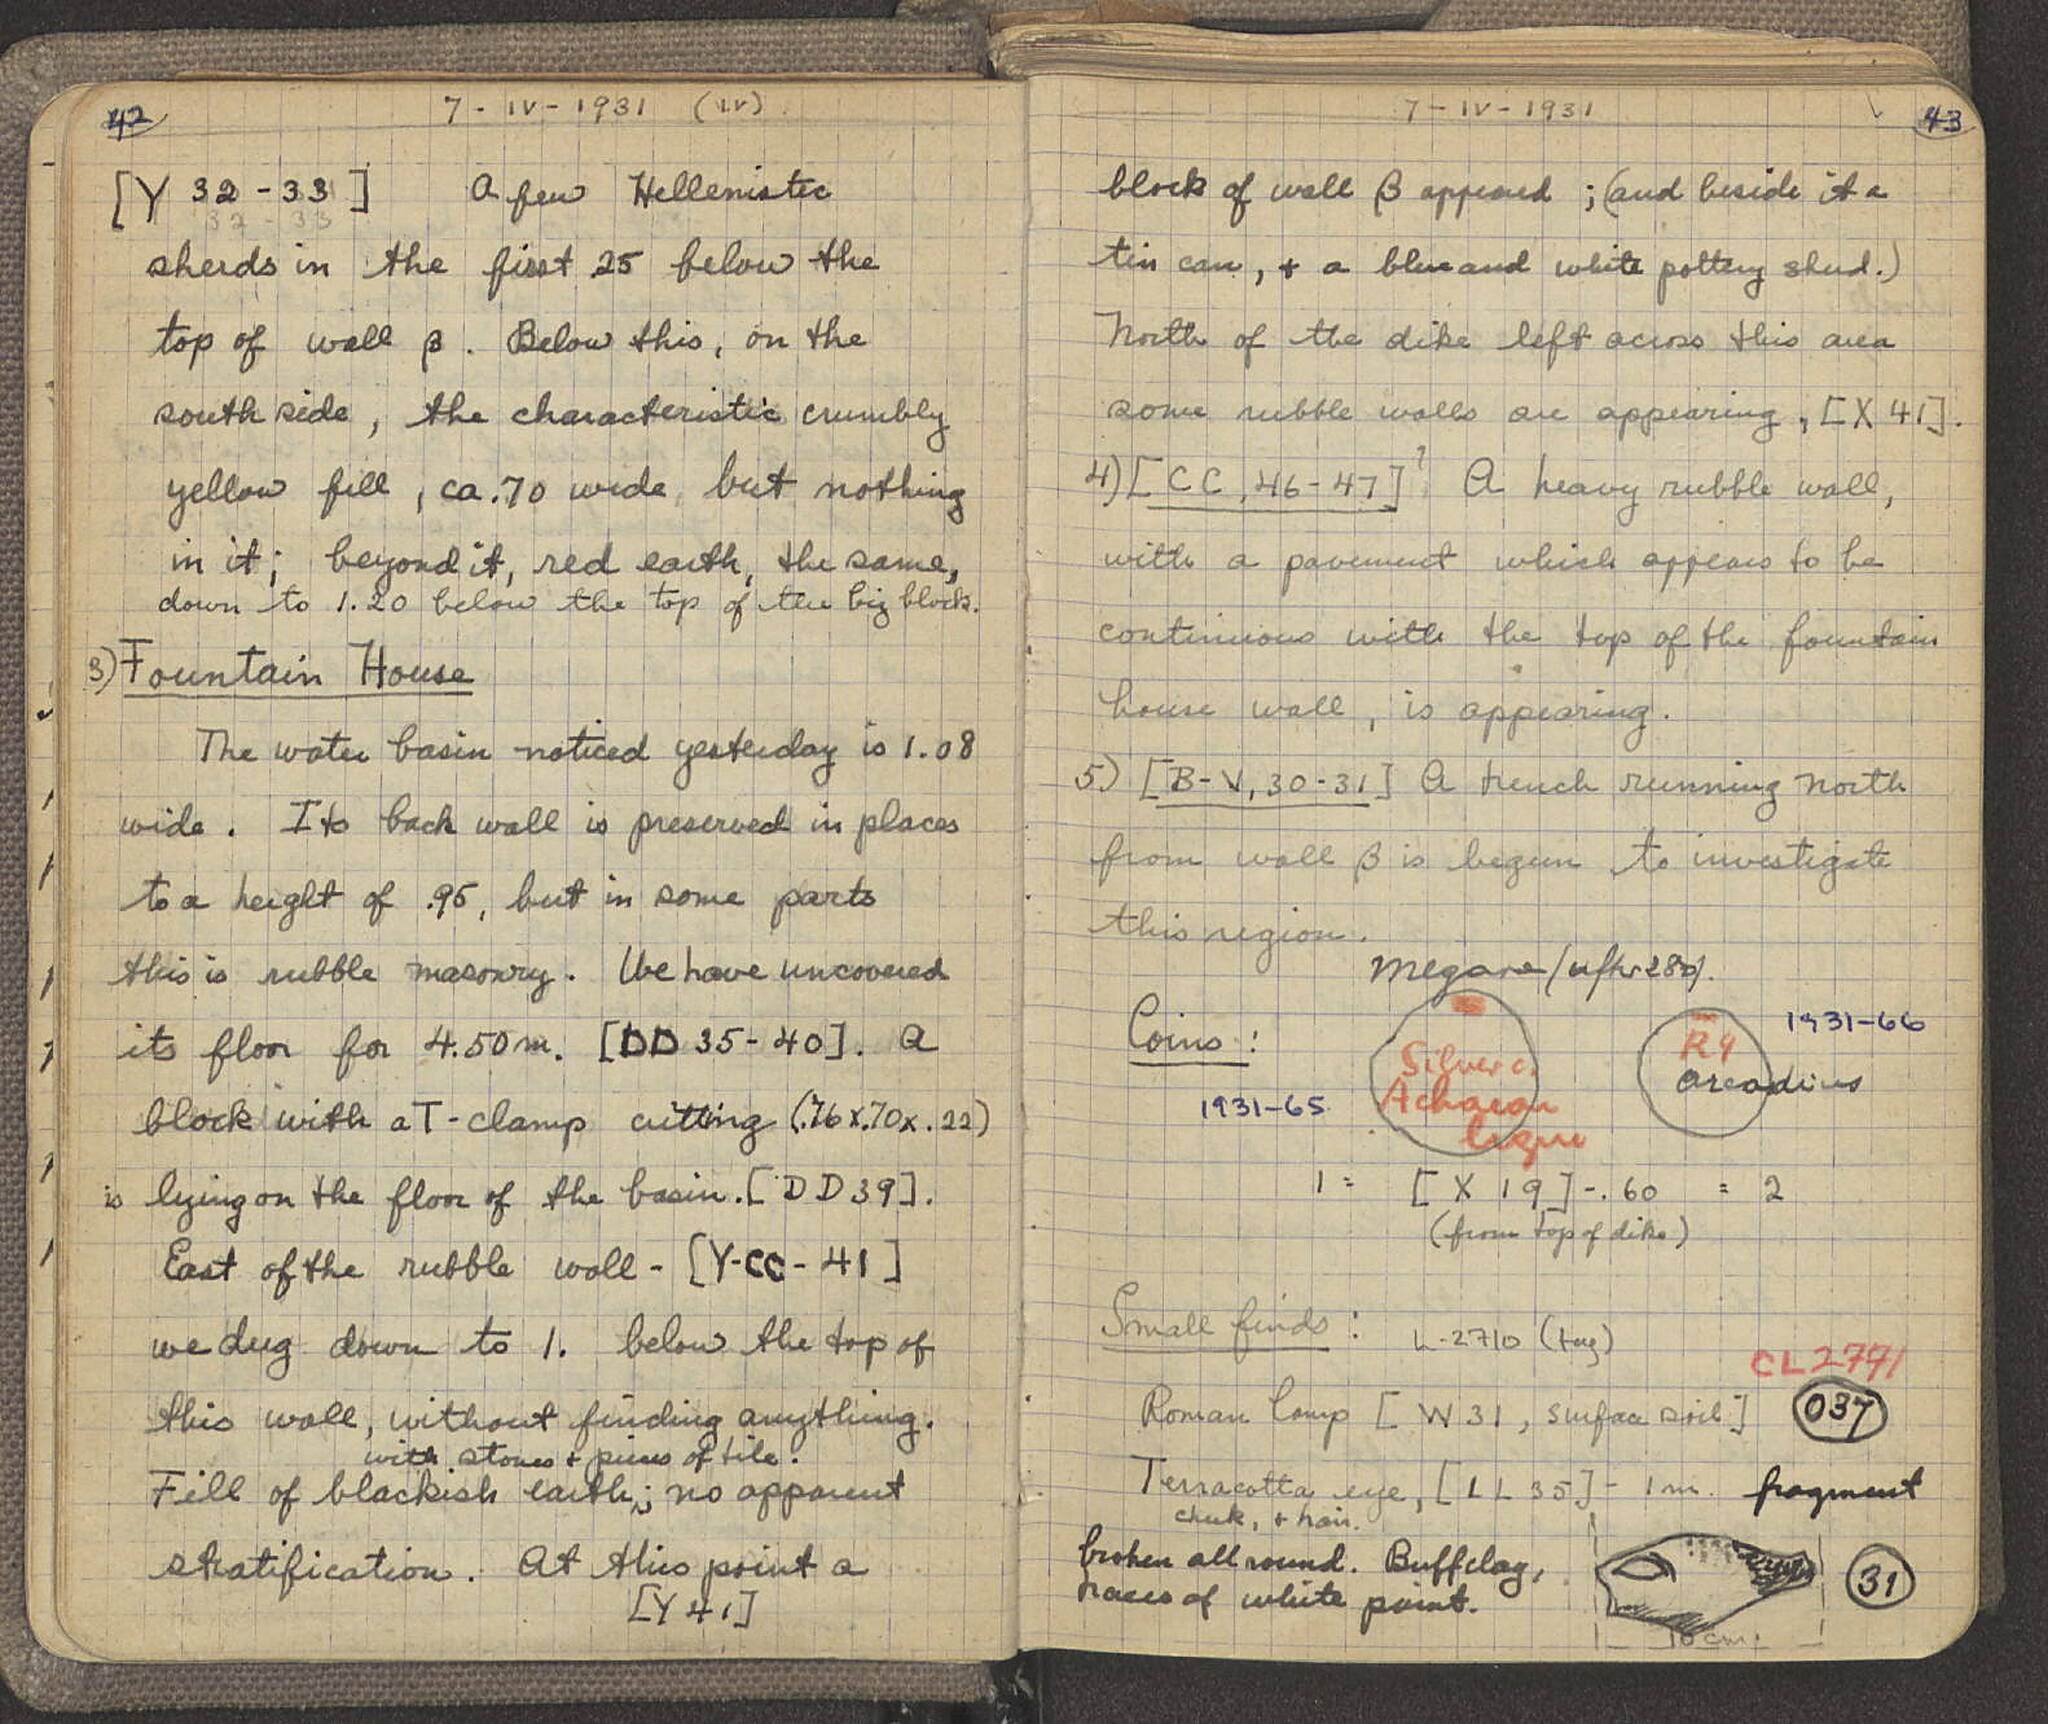 42
7 - IV - 1931 (IV)
[Y 32 - 33] A few Hellenistic
32 - 33
sherds in the first .25 below the
top of wall β. Below this, on the
south side, the characteristic crumbly
yellow fill, ca. .70 wide but nothing
in it; beyond it, red earth, the same,
down to 1.20 below the top of the big block.
3) Fountain House
The water basin noticed yesterday is 1.08
wide. Its back wall is preserved in places
to a height of .95, but in some parts
this is rubble masonry. We have uncovered
its floor for 4.50 m. [DD 35-40]. A
block with a T-clamp cutting (.76 x .70 x .22)
is lying on the floor of the basin. [DD 39].
East of the rubble wall - [Y-CC-41]
we dug down to 1. below the top of
this wall, without finding anything.
with stones + pieces of tile.
Fill of blackish earth; no apparent
stratification. At this point a
[Y 41]
7 - IV - 1931
43
block of wall β appeared; (and beside it a
tin can, + a blue and white pottery sherd.)
North of the dike left across this area
some rubble walls are appearing, [X 41].
4) [CC, 46-47]? A heavy rubble wall,
with a pavement which appears to be
continuous with the top of the fountain
house wall, is appearing.
5) [B-V, 30-31] A trench running north
from wall β is begun to investigate
this region.
Megara (after 280).
Coins:
1931-65
Silver c.
Achaean
legue
R4
Arcadius
1931-66
1 = [X 19] -.60 = 2
(from top of dike)
Small finds: L-2710 (tag)
CL 2771
Roman lamp [W 31, surface soil] 037
Terracotta eye, [LL 35] - 1 m. fragment
cheek, + hair.
broken all round. Buff clay,
traces of white paint.
31
10 cm.